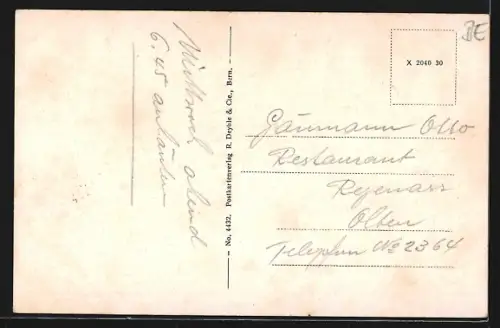 Mittwoch abend
6.45 anläuten
No. 4432. Postkartenverlag R. Deyhle & Cie., Bern.
BE
X 2040 30
Gäumann Otto
Restaurant
Olten
Telefon No 2364